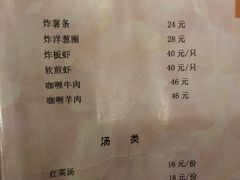 炸薯条 24 元
炸洋葱圈 28 元
炸板虾 40 元/只
软煎虾 40 元/只
咖喱牛肉 46 元
咖喱羊肉 46 元
汤 类
红菜汤 16 元/份
18 元/份